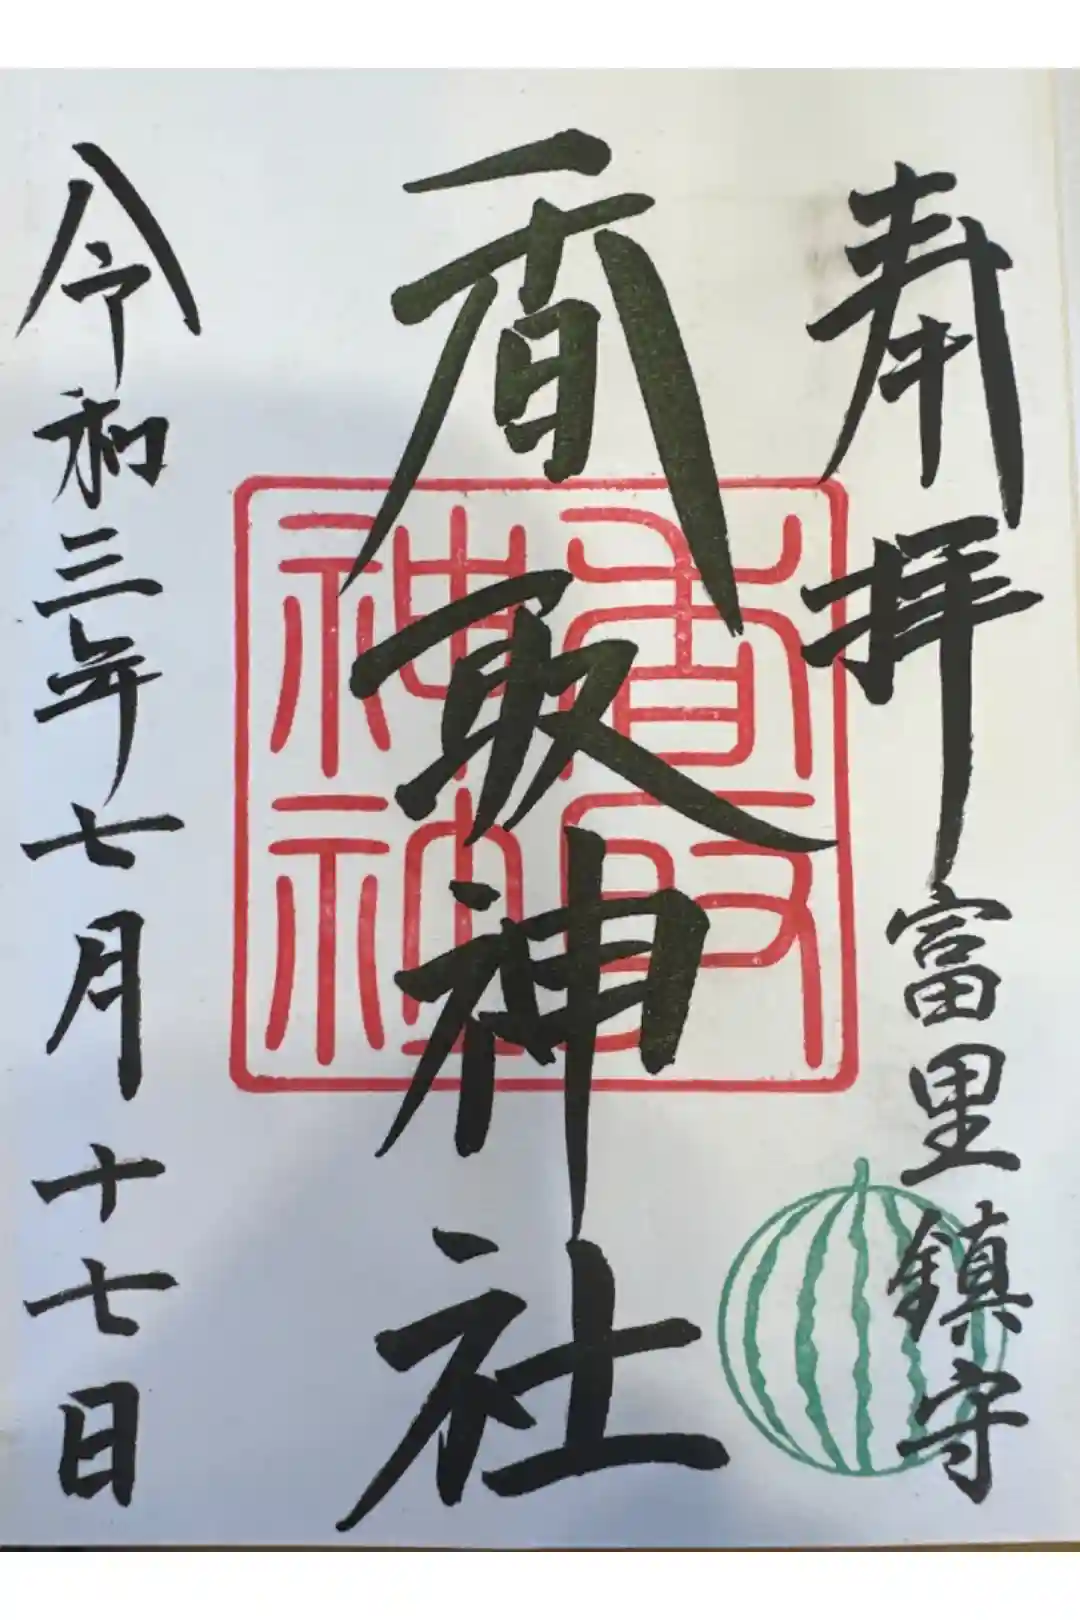 奉拝
富里鎮守
香取神社
香取神社
令和三年七月十七日